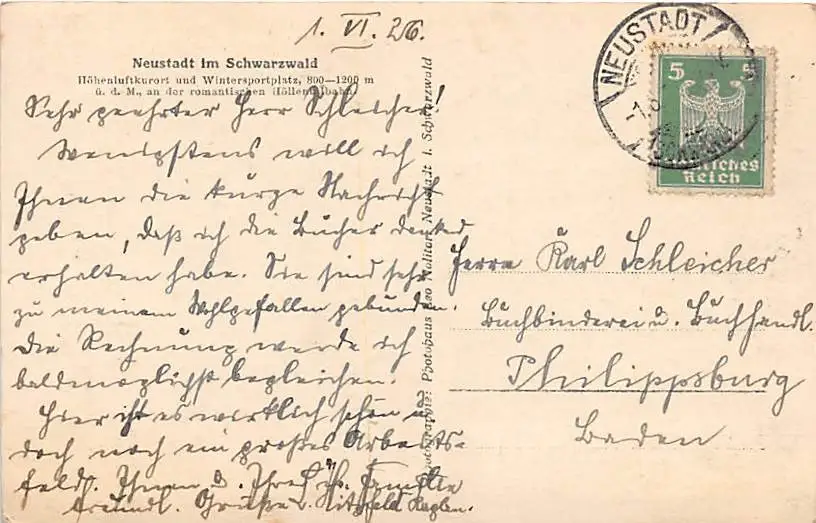 1. VI. 26.
Neustadt im Schwarzwald
Höhenluftkurort und Wintersportplatz, 800—1200 m
ü. d. M., an der romantischen Höllentalbahn
Sehr geehrter Herr Schleicher!
Wenigstens will ich
Ihnen die kurze Nachricht
geben, daß ich die Bücher dankend
erhalten habe. Sie sind sehr
zu meinem Wohlgefallen gebunden.
Die Rechnung werde ich
baldmöglichst begleichen.
Hier ist es wirklich schön u.
doch noch ein großes Arbeits-
feld. Ihnen u. Ihrer Familie
freundl. Grüße Kaplan.
Photographie: Photohaus Leo Molitor, Neustadt i. Schwarzwald
NEUSTADT
(SCHWARZW.)
5 5
Deutsches
Reich
Herrn Karl Schleicher
Buchbinderei u. Buchhandl.
Philippsburg
Baden